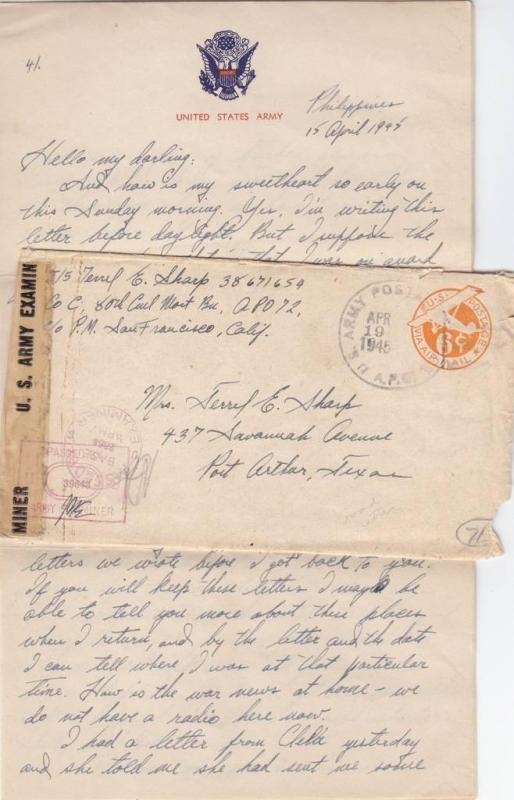 41.
UNITED STATES ARMY
Philippines
15 April 1945
Hello my darling:
And how is my sweetheart so early on
this Sunday morning. Yes, I'm writing this
letter before daylight. But I suppose the
that I was on guard
T/5 Terrel E. Sharp 38671659
Co C, 80th Cml Mort Bn, APO 72,
c/o P.M. San Francisco, Calif.
U.S. ARMY POSTAL
APR
19
1945
A.P.O.
U.S. POSTAGE
6¢
VIA AIR MAIL
MINER U. S. ARMY EXAMIN
Mrs. Terrel E. Sharp
437 Savannah Avenue
Port Arthur, Texas
PASSED
BASE
39643
ARMY EXAMINER
71
letters we wrote before I got back to you.
If you will keep these letters I may be
able to tell you more about these places
when I return, and by the letter and the date
I can tell where I was at that particular
time. How is the war news at home - we
do not have a radio here now.
I had a letter from yesterday
and she told me she had sent me some